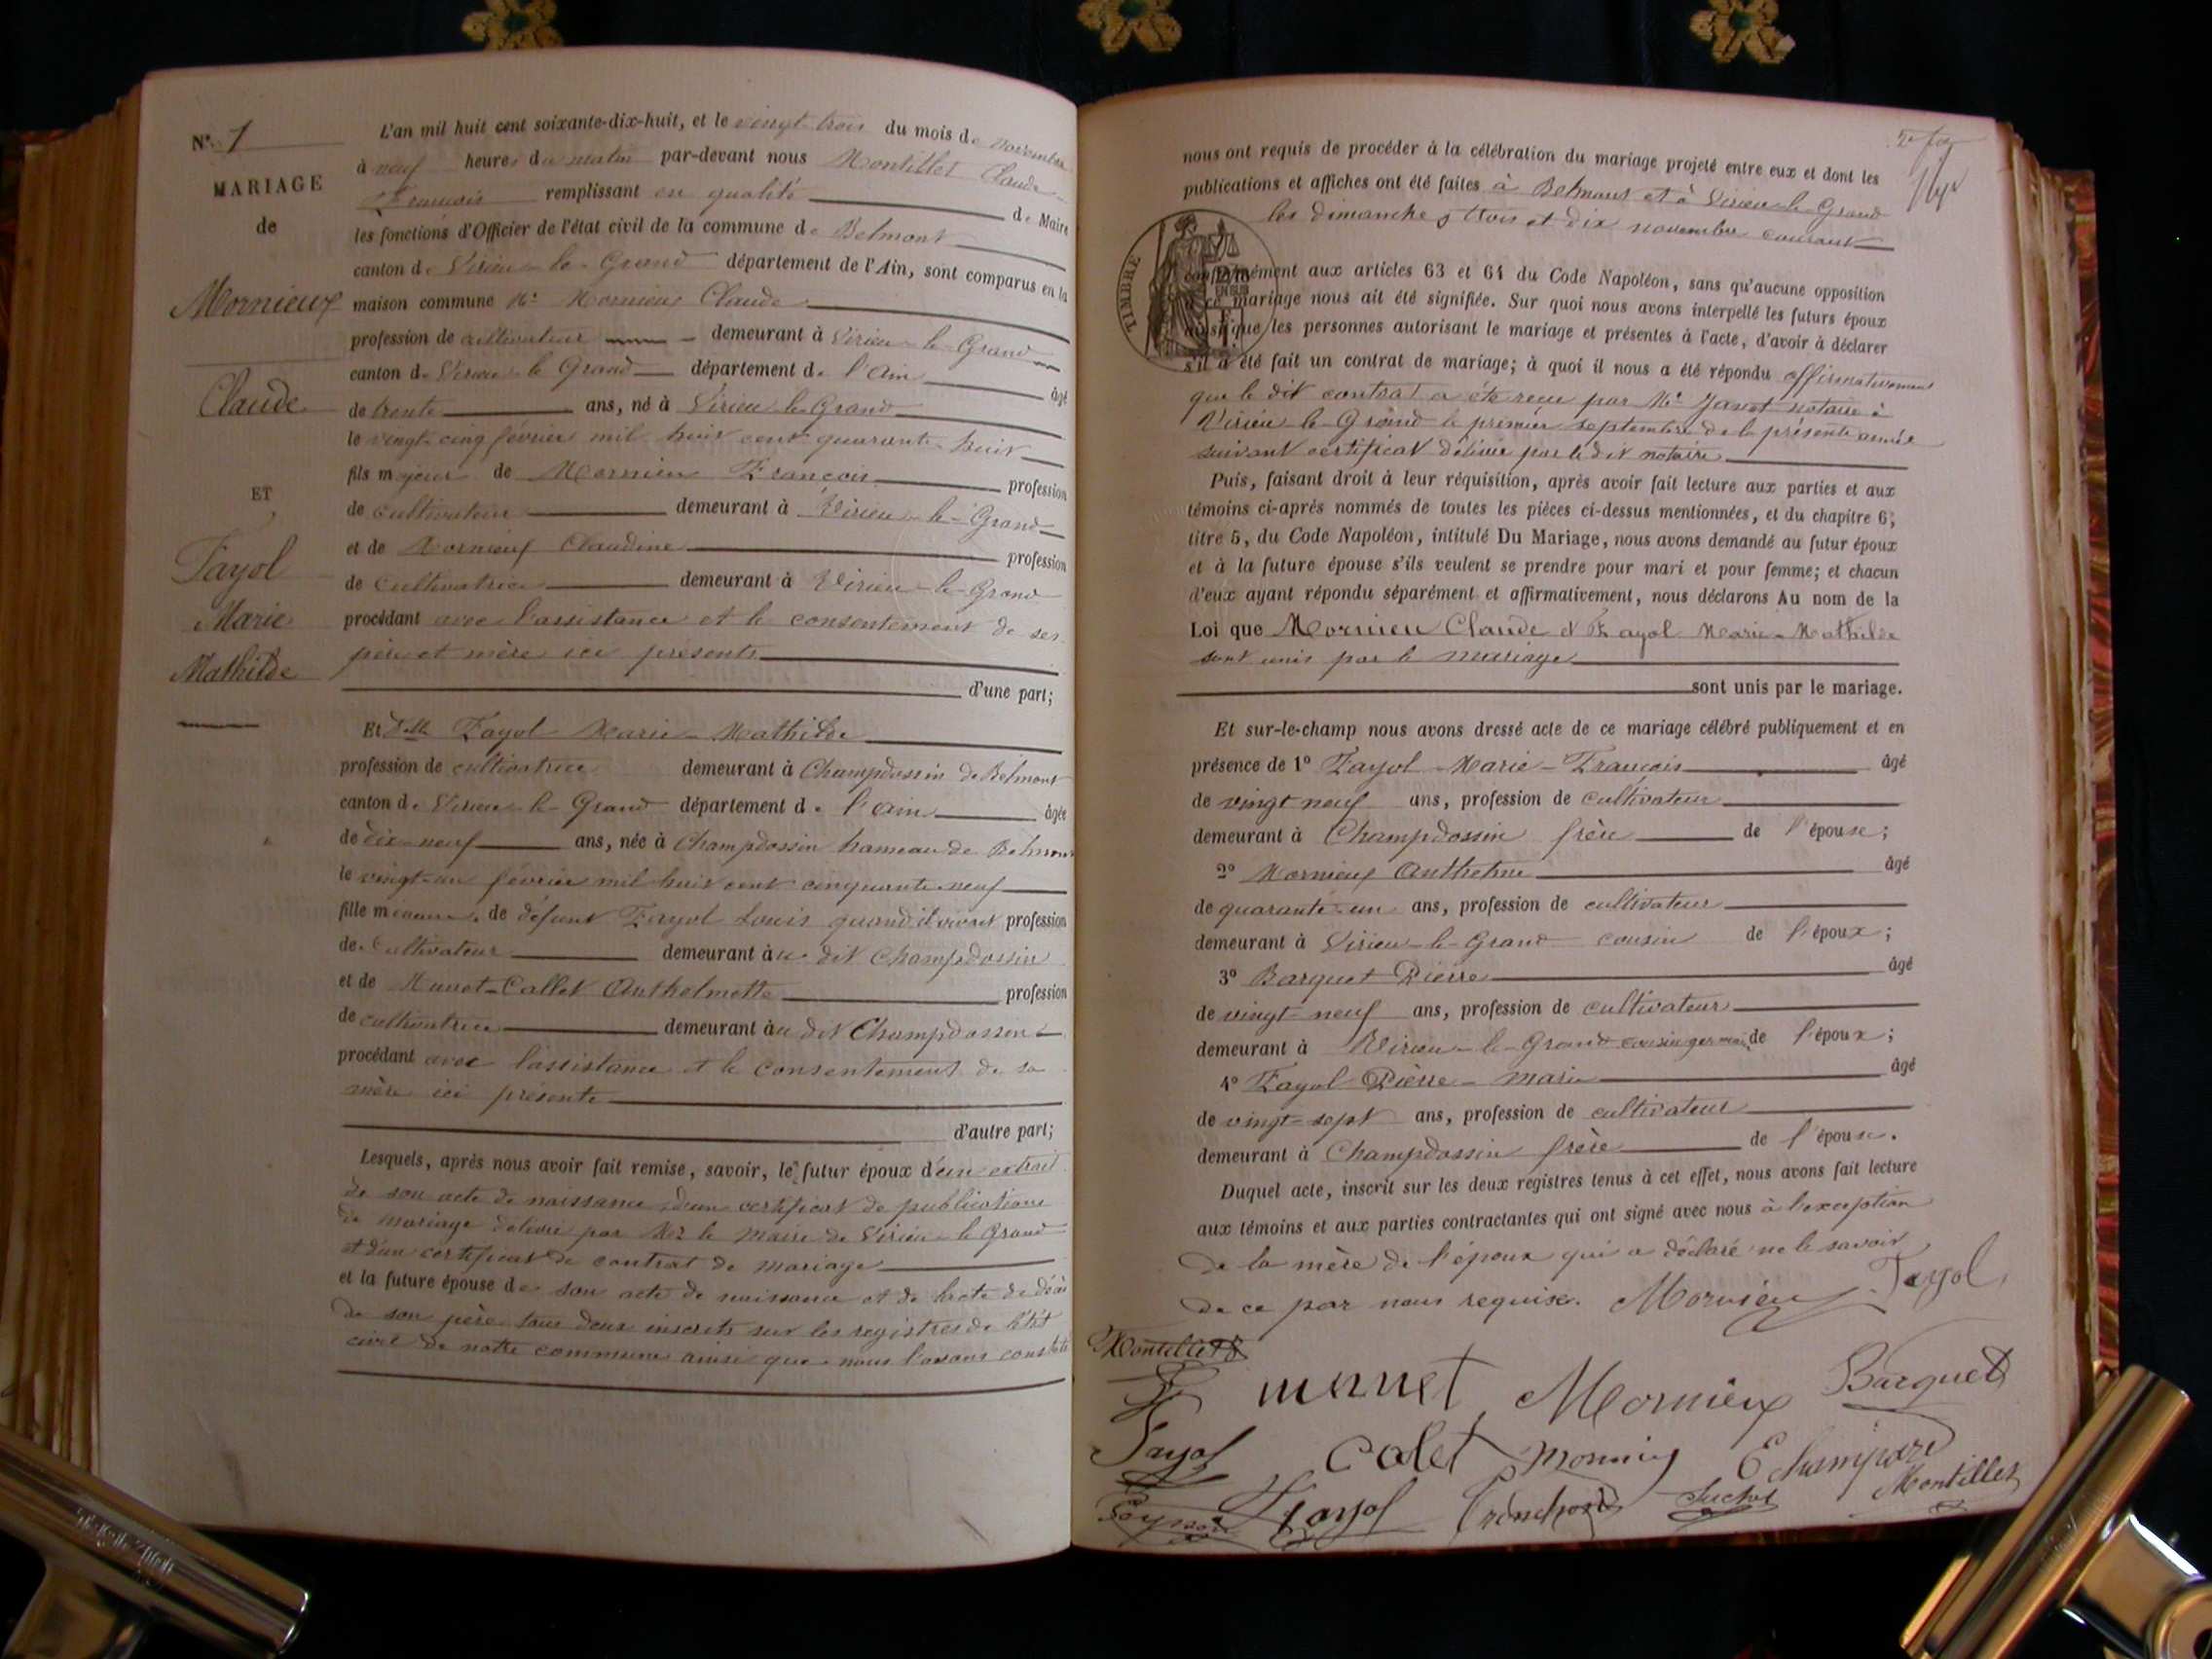 N° 7
MARIAGE
de
Mornieux
Claude
ET
Fayol
Marie
Mathilde
L'an mil huit cent soixante-dix-huit, et le vingt-trois du mois de novembre
à neuf heures du matin par-devant nous Montillet Claude
François remplissant en qualité de Maire
les fonctions d'Officier de l'état civil de la commune de Belmont
canton de Virieu-le-Grand département de l'Ain, sont comparus en la
maison commune Mr Mornieu Claude
profession de cultivateur demeurant à Virieu-le-Grand
canton de Virieu-le Grand département de l'Ain âgé
de trente ans, né à Virieu le Grand
le vingt-cinq février mil huit cent quarante-huit
fils majeur de Mornieu François profession
de cultivateur demeurant à Virieu-le-Grand
et de Mornieux Claudine profession
de cultivatrice demeurant à Virieu-le-Grand
procédant avec l'assistance et le consentement de ses
père et mère ici présents
d'une part;
Et Delle Fayol Marie-Mathilde
profession de cultivatrice demeurant à Champdossin de Belmont
canton de Virieu-le-Grand département de l'Ain âgée
de dix-neuf ans, née à Champdossin hameau de Belmont
le vingt-un février mil huit cent cinquante-neuf
fille mineure de défunt Fayol Louis quand il vivait profession
de cultivateur demeurant au dit Champdossin
et de Munet-Callet Anthelmette profession
de cultivatrice demeurant au dit Champdossin
procédant avec l'assistance et le consentement de sa
mère ici présente
d'autre part;
Lesquels, après nous avoir fait remise, savoir, le futur époux d'un extrait
de son acte de naissance, d'un certificat de publications
de mariage délivré par Mr le Maire de Virieu-le Grand
et d'un certificat de contrat de mariage
et la future épouse de son acte de naissance et de l'acte de décès
de son père tous deux inscrits sur les registres de l'état
civil de notre commune ainsi que nous l'avons constaté
nous ont requis de procéder à la célébration du mariage projeté entre eux et dont les
publications et affiches ont été faites à Belmont et à Virieu-le-Grand
les dimanches trois et dix novembre courant
TIMBRE
conformément aux articles 63 et 64 du Code Napoléon, sans qu'aucune opposition
à ce mariage nous ait été signifiée. Sur quoi nous avons interpellé les futurs époux
ainsi que les personnes autorisant le mariage et présentes à l'acte, d'avoir à déclarer
s'il a été fait un contrat de mariage; à quoi il nous a été répondu affirmativement
que le dit contrat a été reçu par Me Janet notaire à
Virieu le Grand le premier septembre de la présente année
suivant certificat délivré par le dit notaire
Puis, faisant droit à leur réquisition, après avoir fait lecture aux parties et aux
témoins ci-après nommés de toutes les pièces ci-dessus mentionnées, et du chapitre 6,
titre 5, du Code Napoléon, intitulé Du Mariage, nous avons demandé au futur époux
et à la future épouse s'ils veulent se prendre pour mari et pour femme; et chacun
d'eux ayant répondu séparément et affirmativement, nous déclarons Au nom de la
Loi que Mornieu Claude et Fayol Marie-Mathilde
sont unis par le mariage
sont unis par le mariage.
Et sur-le-champ nous avons dressé acte de ce mariage célébré publiquement et en
présence de 1° Fayol Marie-François âgé
de vingt neuf ans, profession de cultivateur
demeurant à Champdossin frère de l'épouse;
2° Mornieux Anthelme âgé
de quarante-un ans, profession de cultivateur
demeurant à Virieu-le-Grand cousin de l'époux;
3° Barquet Pierre âgé
de vingt-neuf ans, profession de cultivateur
demeurant à Virieu-le-Grand cousin germain de l'époux;
4° Fayol Pierre-Marie âgé
de vingt-sept ans, profession de cultivateur
demeurant à Champdossin frère de l'épouse.
Duquel acte, inscrit sur les deux registres tenus à cet effet, nous avons fait lecture
aux témoins et aux parties contractantes qui ont signé avec nous à l'exception
de la mère de l'époux qui a déclaré ne le savoir
de ce par nous requise. Mornieu Fayol
Montillet
munet Mornieux Barquet
Fayol calet
Fayol Trinchon Suchet Montillet